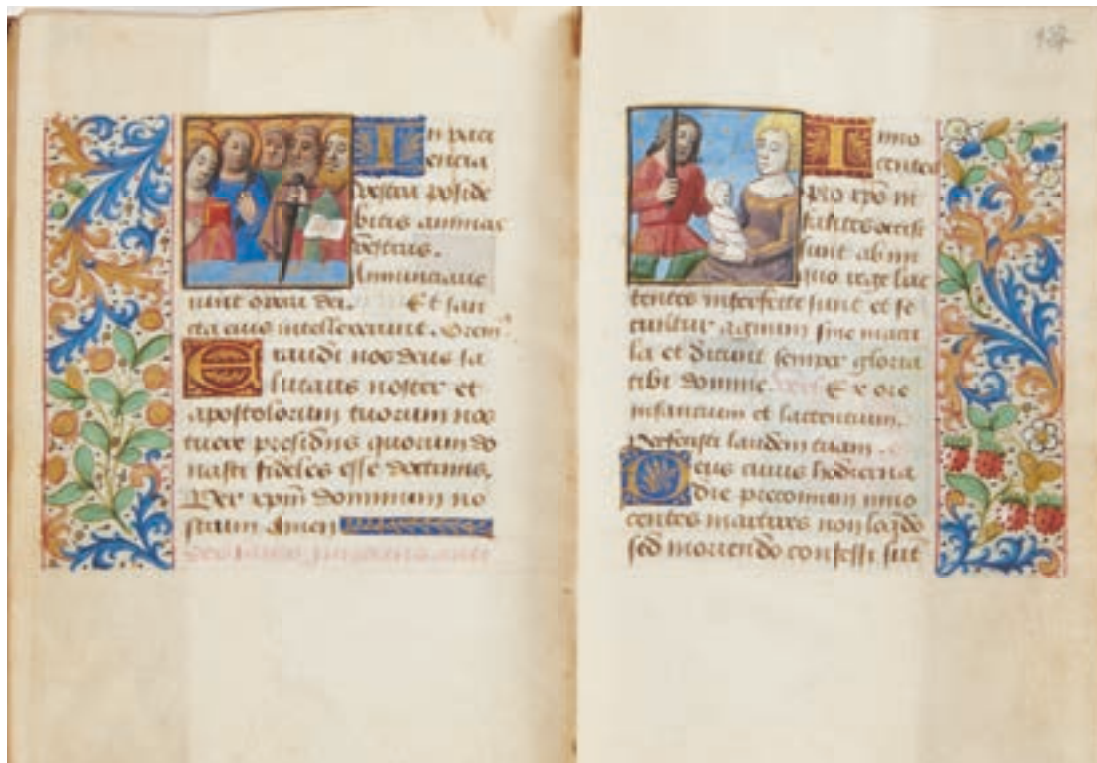 In paci
encia
vestra poside
bitis animas
vestras.
Annunciave
runt opera dei. Et fac
ta eius intellexerunt. Orem
Exaudi nos deus sa
lutaris noster et
apostolorum tuorum nos
tuere presidiis quorum do
nasti fideles esse doctrinis.
Per xpm dominum no
strum Amen
Inno
centes
pro xpo in
fantes occisi
sunt ab ini
quo rege lac
tentes interfecti sunt et se
cuntur agnum sine macu
la et dicunt semper gloria
tibi domine. Ex ore
infantium et lactentium.
Perfecisti laudem tuam.
Deus cuius hodierna
die preconium inno
centes martires non loq̄ndo
sed moriendo confessi sūt